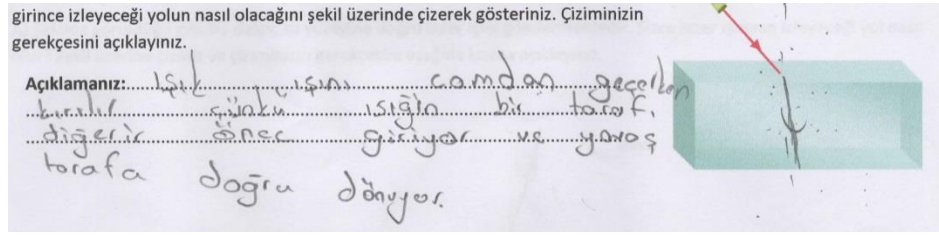 girince izleyeceği yolun nasıl olacağını şekil üzerinde çizerek gösteriniz. Çiziminizin
gerekçesini açıklayınız.
Açıklamanız: Işık ışını camdan geçerken
kırılır çünkü ışığın bir taraf.
diğerir önec giriyor ve yavaş
tarafa doğru dönüyor.